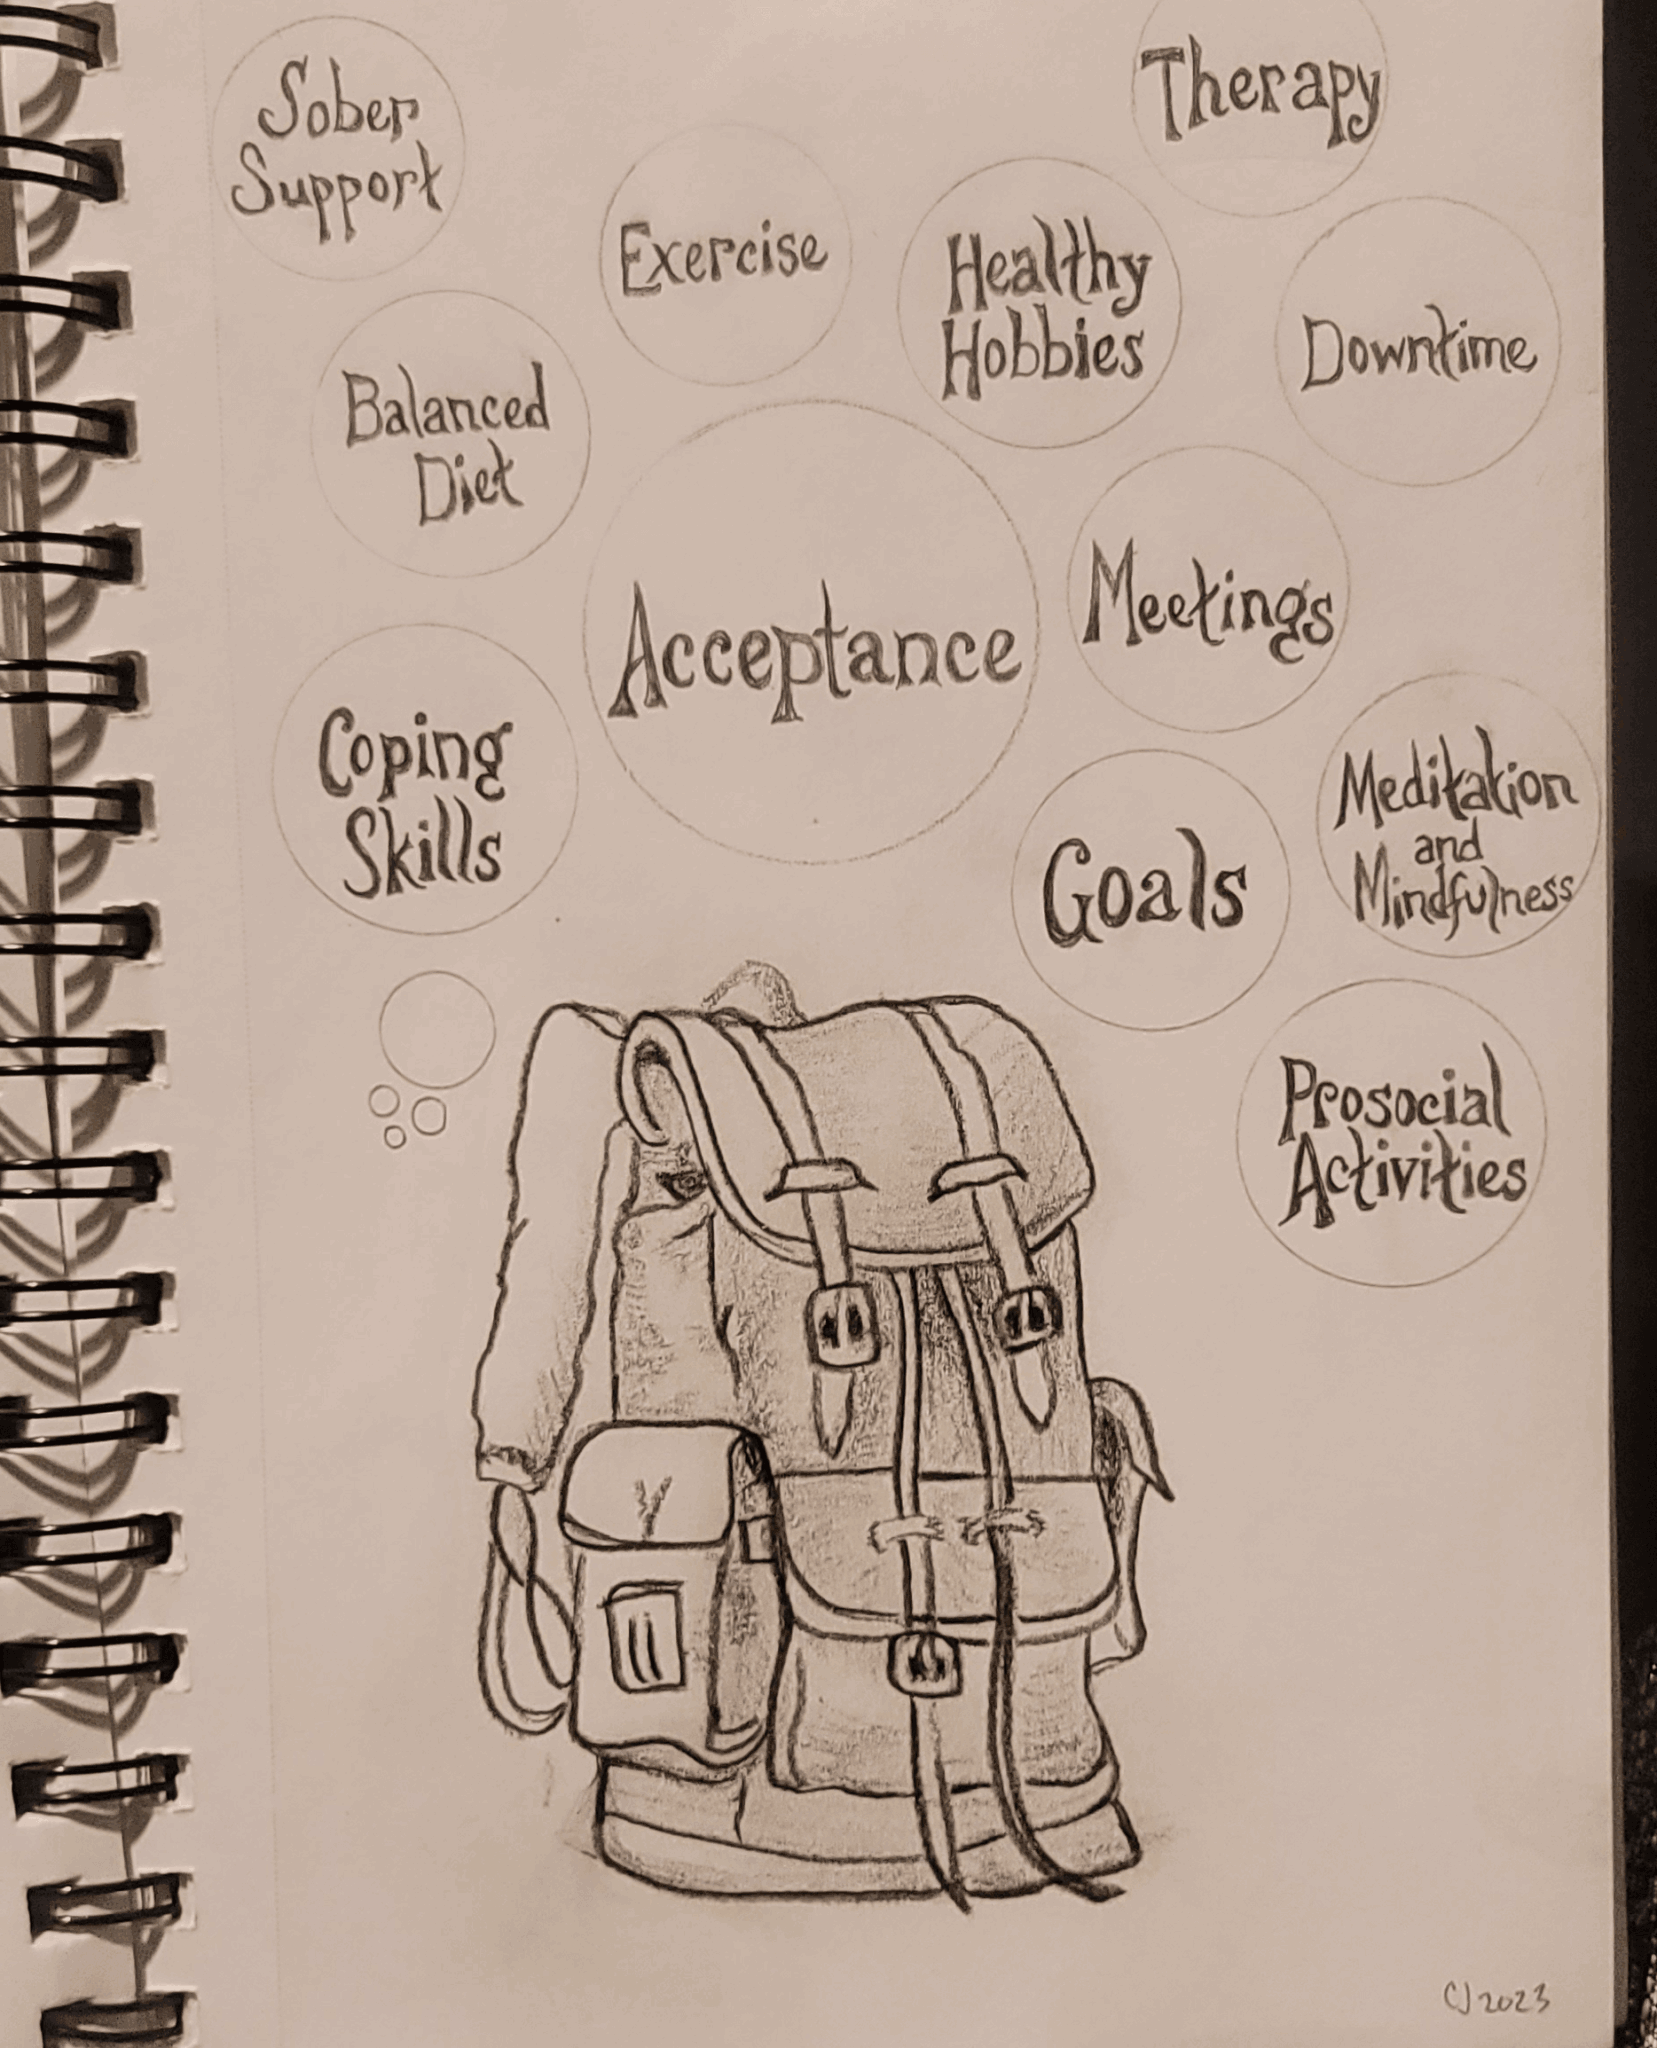 Sober
Support
Therapy
Exercise
Healthy
Hobbies
Downtime
Balanced
Diet
Acceptance
Meetings
Coping
Skills
Goals
Meditation
and
Mindfulness
Prosocial
Activities
CJ 2023